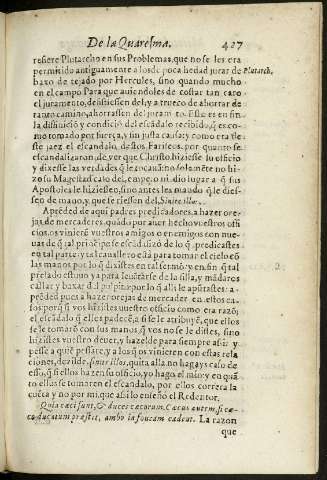 De la Quaresma. 427
refiere Plutarcho en sus Problemas, que no se les era
permitido antiguamente a los de poca hedad jurar de Plutarch.
baxo de tejado por Hercules, sino quando mucho
en el campo Para que auiendoles de costar tan caro
el juramento, desistiessen del, y a trueco de ahorrar de
tanto camino, ahorrassen del juramẽto. Esto es en fin
la difinició y condició del escãdalo recibido, q̃ es co-
mo tomado por fuerça, y sin justa causa: y como era de
ste jaez el escandalo, destos Fariseos, por quanto se
escandalizaron, de ver que Christo hiziesse su officio
y dixesse las verdades q̃ le encauã: no solamẽte no hi-
zo su Magestad caso del, empero, ni dio lugar a q̃ sus
Apostoles le hiziessẽ, sino antes les mãdo q̃ le dies-
sen de mano, y que se riessen del, Sinite illos.
Aprẽded de aqui padres predicadores, a hazer ore-
jas de mercaderes, quãdo por auer hecho vuestros offi-
cios, os viniere vuestros amigos o enemigos con nue-
uas de q̃ tal principe se escãdalizó de lo q̃ predicastes
en tal parte: y tal cauallero está para tomar el cielo cõ
las manos por lo q̃ dixistes en tal sermõ: y en fin q̃ tal
prelado estuuo ya para leuãtarse de la silla, y mãdaros
callar y baxar del pulpito: por lo q̃ alli le apũtastes: a-
prẽded pues a hazer orejas de mercader en estos ca-
sos: porq̃ si vos hizistes vuestro officio como era razõ;
el escãdalo q̃ ellos padecẽ, a si se le atribuyẽ, que ellos
se le tomarõ con sus manos q̃ vos no se le distes, sino
hizistes vuestro deuer, y hazelde para siempre assi: y
pesse a quiẽ pessare, y a los q̃ os vinieren con estas rela
ciones, dezilde, sinite illos, quita alla no hagays caso de
esso, q̃ si ellos hazen su officio, yo hago el mio: y en quã
to ellos se tomaren el escandalo, por ellos correra la
quẽta y no por mi, que assi lo enseñó el Redentor.
Quia cæci sunt, & duces cæcorum. Cæcus autem, si cæ-
co ducatum præstet, ambo in foueam cadent. La razon
que